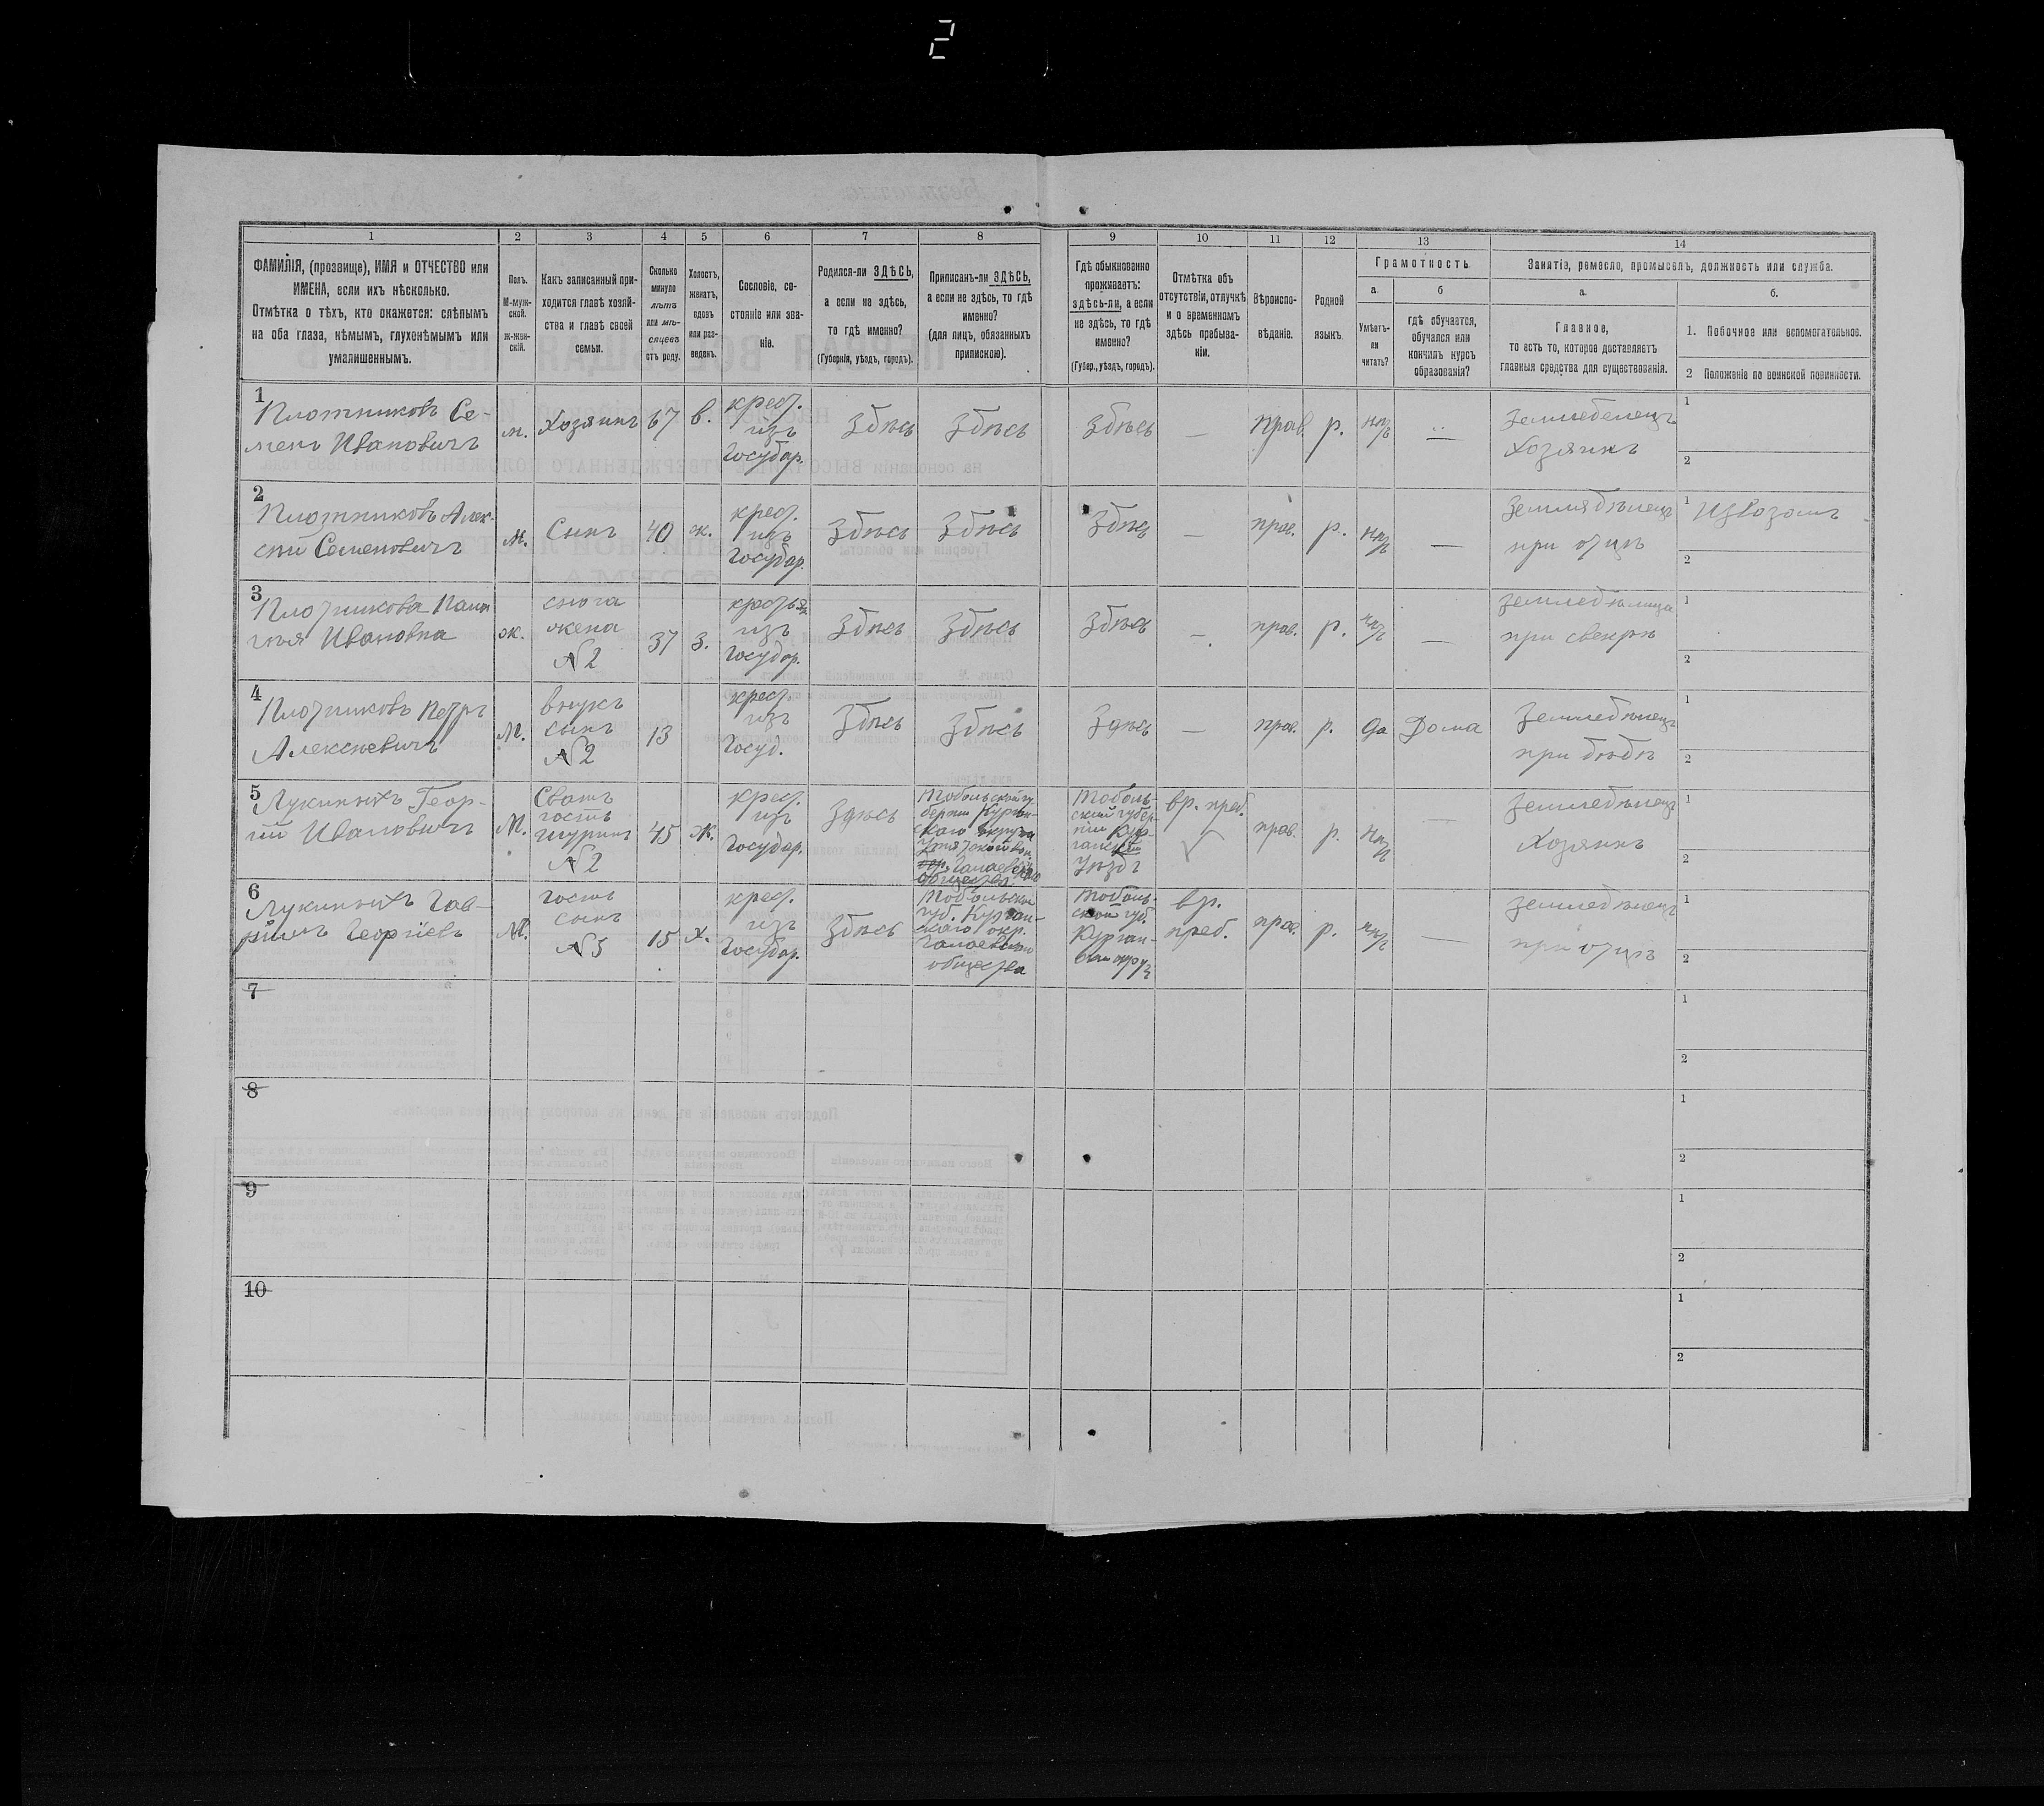 2
1 2 3 4 5 6 7 8 9 10 11 12 13 14
ФАМИЛІЯ, (прозвище), ИМЯ и ОТЧЕСТВО или
ИМЕНА, если ихъ нѣсколько.
Отмѣтка о тѣхъ, кто окажется: слѣпымъ
на оба глаза, нѣмымъ, глухонѣмымъ или
умалишеннымъ.
Полъ.
М-муж-
ской.
ж-жен-
скій.
Какъ записанный при-
ходится главѣ хозяй-
ства и главѣ своей
семьи.
Сколько
минуло
лѣтъ
или мѣ-
сяцевъ
отъ роду.
Холостъ,
женатъ,
вдовъ
или раз-
веденъ.
Сословіе, со-
стояніе или зва-
ніе.
Родился-ли ЗДѢСЬ,
а если не здѣсь,
то гдѣ именно?
(Губернія, уѣздъ, городъ).
Приписанъ-ли ЗДѢСЬ,
а если не здѣсь, то гдѣ
именно?
(для лицъ, обязанныхъ
припискою).
Гдѣ обыкновенно
проживаетъ:
здѣсь-ли, а если
не здѣсь, то гдѣ
именно?
(Губер., уѣздъ, городъ).
Отмѣтка объ
отсутствіи, отлучкѣ
и о временномъ
здѣсь пребыва-
ніи.
Вѣроиспо-
вѣданіе.
Родной
языкъ.
Грамотность.
а.
Умѣетъ-
ли
читать?
б
гдѣ обучается,
обучался или
кончилъ курсъ
образованія?
Занятіе, ремесло, промыселъ, должность или служба.
а.
Главное,
то есть то, которое доставляетъ
главныя средства для существованія.
б.
1. Побочное или вспомогательное.
2 Положеніе по воинской повинности.
1
Плотниковъ Се-
менъ Ивановичъ
м.
Хозяинъ
67
в.
крест.
изъ
Государ.
Здѣсь
Здѣсь
Здѣсь
—
прав.
р.
—
Хозяинъ
1
2
2
Плотниковъ Алек-
сѣй Семеновичъ
м.
Сынъ
40
ж.
крест.
изъ
Государ.
Здѣсь
Здѣсь
Здѣсь
—
прав.
р.
—
при отцѣ
1 Извозомъ
2
3
Плотникова
Ивановна
ж.
жена
№ 2
37
з.
изъ
Государ.
Здѣсь
Здѣсь
Здѣсь
—
прав.
р.
—
при свекрѣ
1
2
4
Плотниковъ Петръ
Алексѣевичъ
М.
внукъ
сынъ
№ 2
13
крест.
изъ
Госуд.
Здѣсь
Здѣсь
Здѣсь
—
прав.
р.
да
Дома
Земледѣлецъ
при дѣдѣ
1
2
5
Лукиныхъ Геор-
гій Ивановичъ
М.
Сватъ
гость
шуринъ
№ 2
45
ж.
крест.
изъ
Государ.
Здѣсь
Тобольской гу
берніи Курган-
скаго округа
общества
Тоболь-
ской губер-
ніи Кур-
Уѣздъ
вр. преб.
прав.
р.
—
Земледѣлецъ
Хозяинъ
1
2
6
Лукиныхъ Гав-
Георгіевъ
М.
гость
сынъ
№ 5
15
х.
крест.
изъ
Государ.
Здѣсь
Тобольской
губ. Курган-
скаго окр.
общества
Тоболь-
ской губ.
Курган-
вр.
преб.
прав.
р.
—
Земледѣлецъ
при отцѣ
1
2
7
1
2
8
1
2
9
1
2
10
1
2